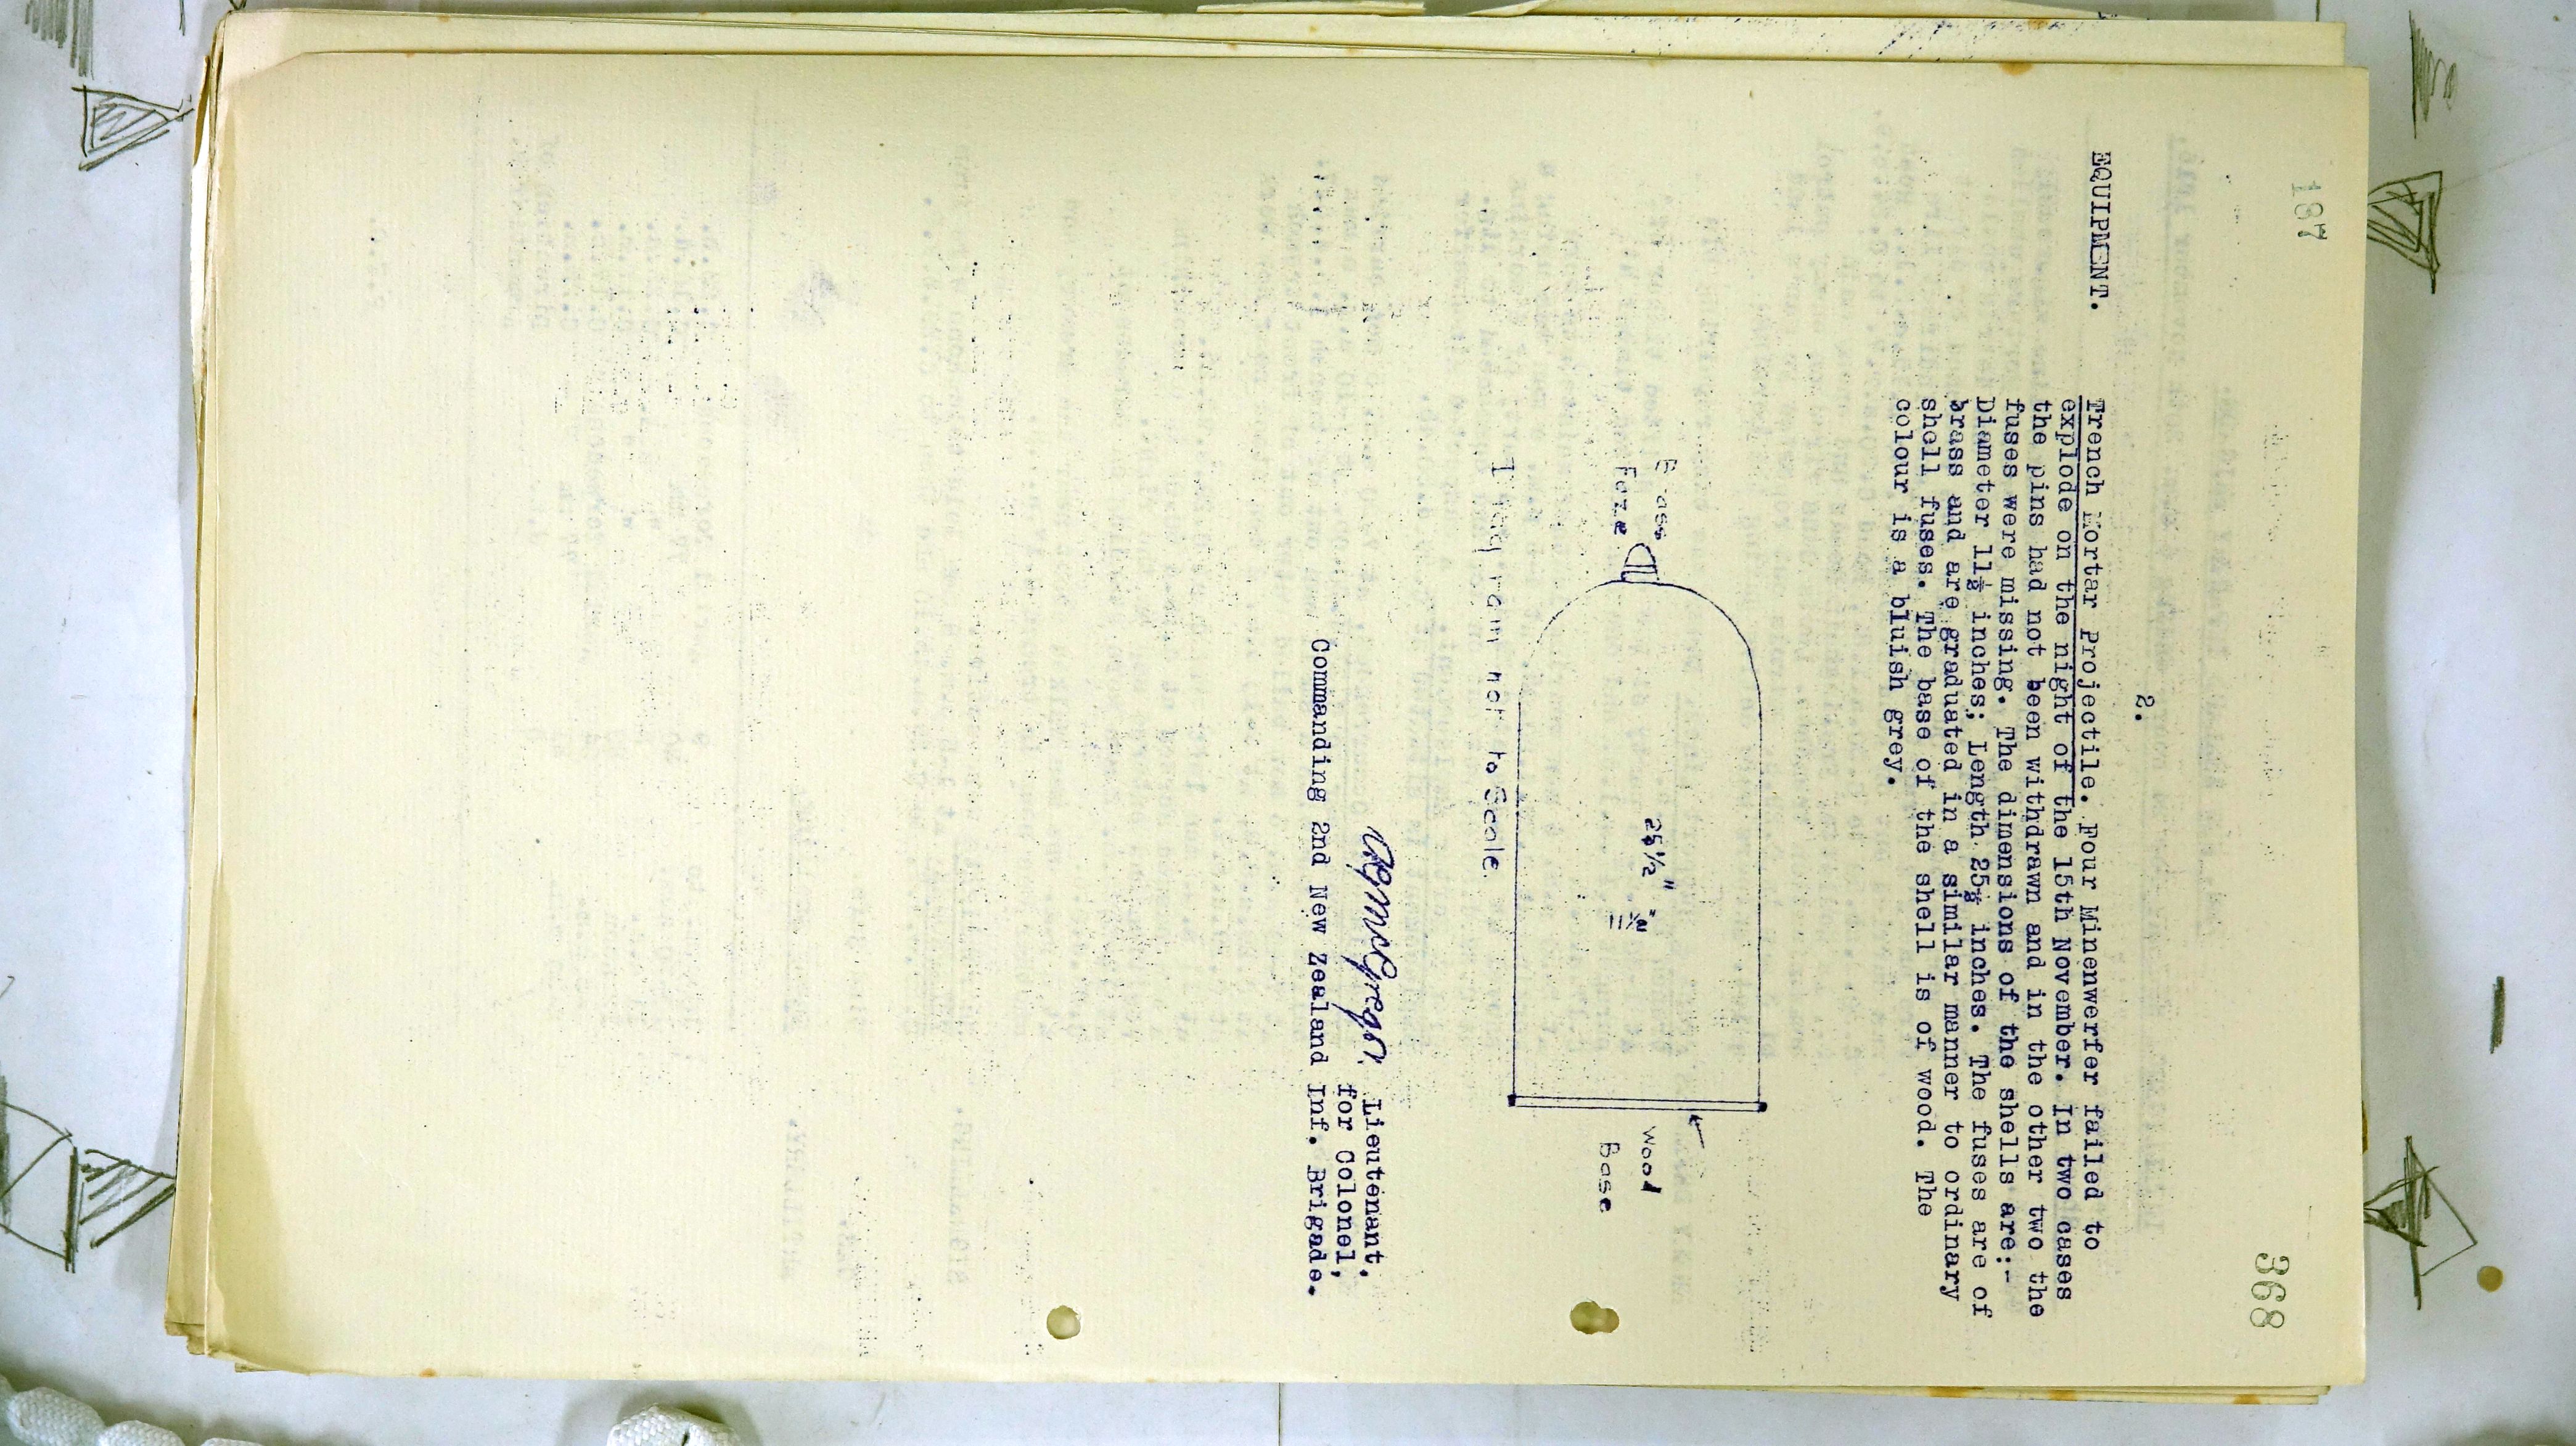 187
368
2.
EQUIPMENT.
Trench Mortar Projectile. Four Minenwerfer failed to
explode on the night of the 15th November. In two cases
the pins had not been withdrawn and in the other two the
fuses were missing. The dimensions of the shells are:-
Diameter 11½ inches; Length 25½ inches. The fuses are of
brass and are graduated in a similar manner to ordinary
shell fuses. The base of the shell is of wood. The
colour is a bluish grey.
Brass
Fuze
25½"
11½"
Wood
Base
Diagram not to Scale.
Lieutenant,
for Colonel,
Commanding 2nd New Zealand Inf. Brigade.